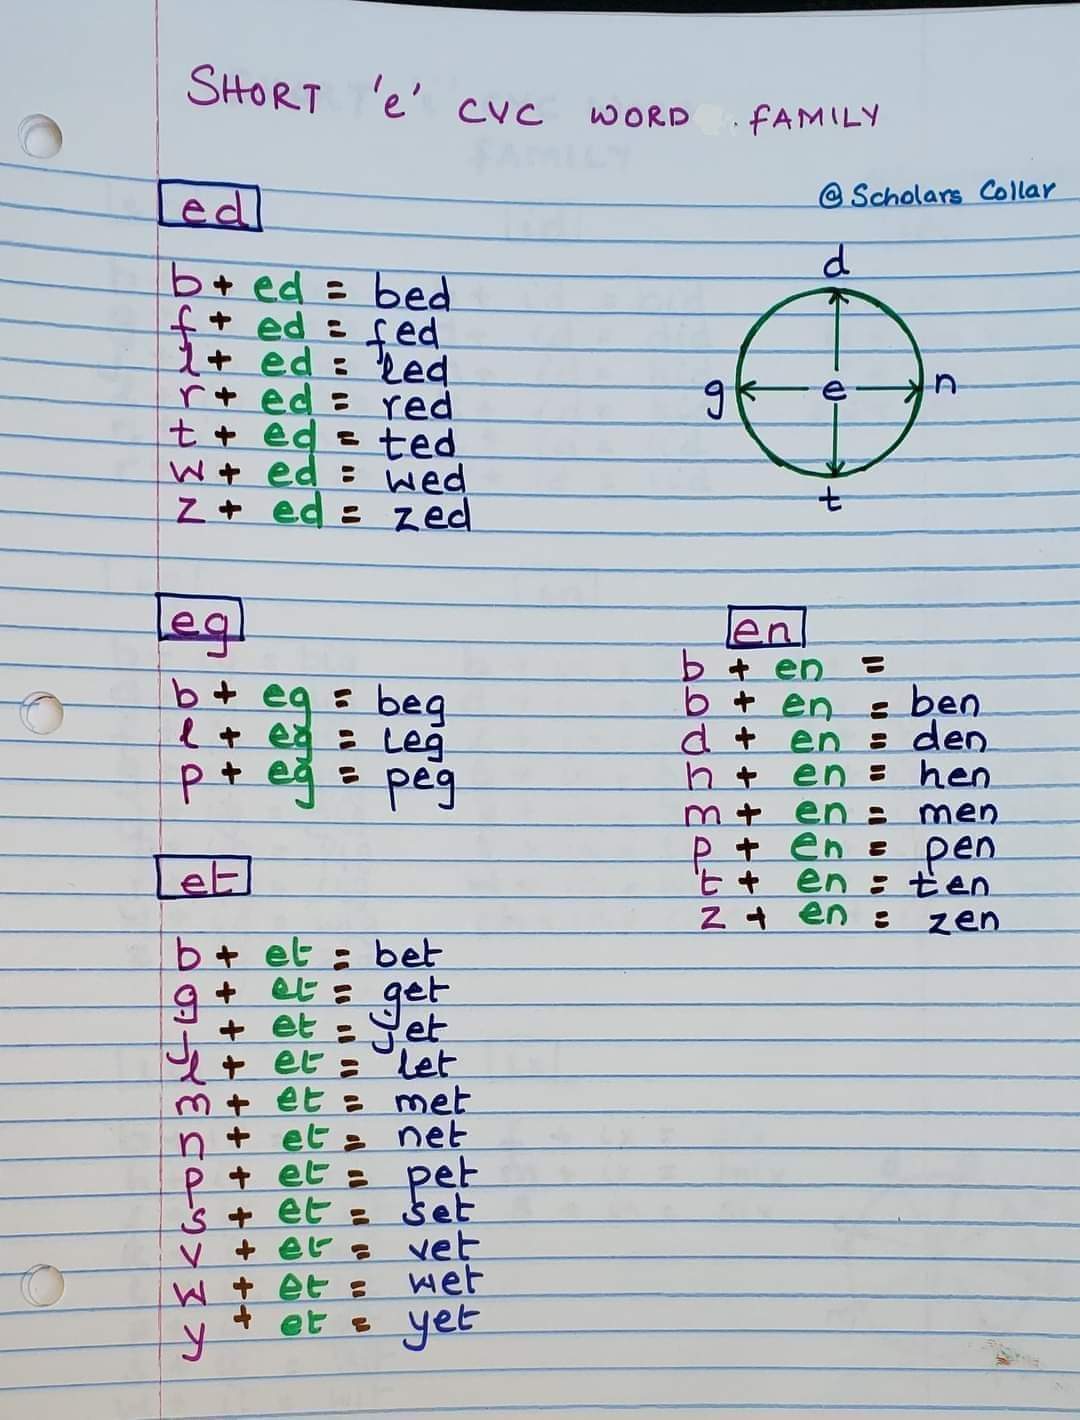 SHORT 'e' CVC WORD . FAMILY
@ Scholars Collar
ed
b + ed = bed
f + ed = fed
l + ed = led
r + ed = red
t + ed = ted
w + ed = wed
z + ed = zed
d
g e n
t
eg
b + eg = beg
l + eg = Leg
p + eg = peg
en
b + en =
b + en = ben
d + en = den
h + en = hen
m + en = men
p + en = pen
t + en = ten
z + en = zen
et
b + et = bet
g + et = get
j + et = jet
l + et = let
m + et = met
n + et = net
p + et = pet
s + et = set
v + et = vet
w + et = wet
y + et = yet